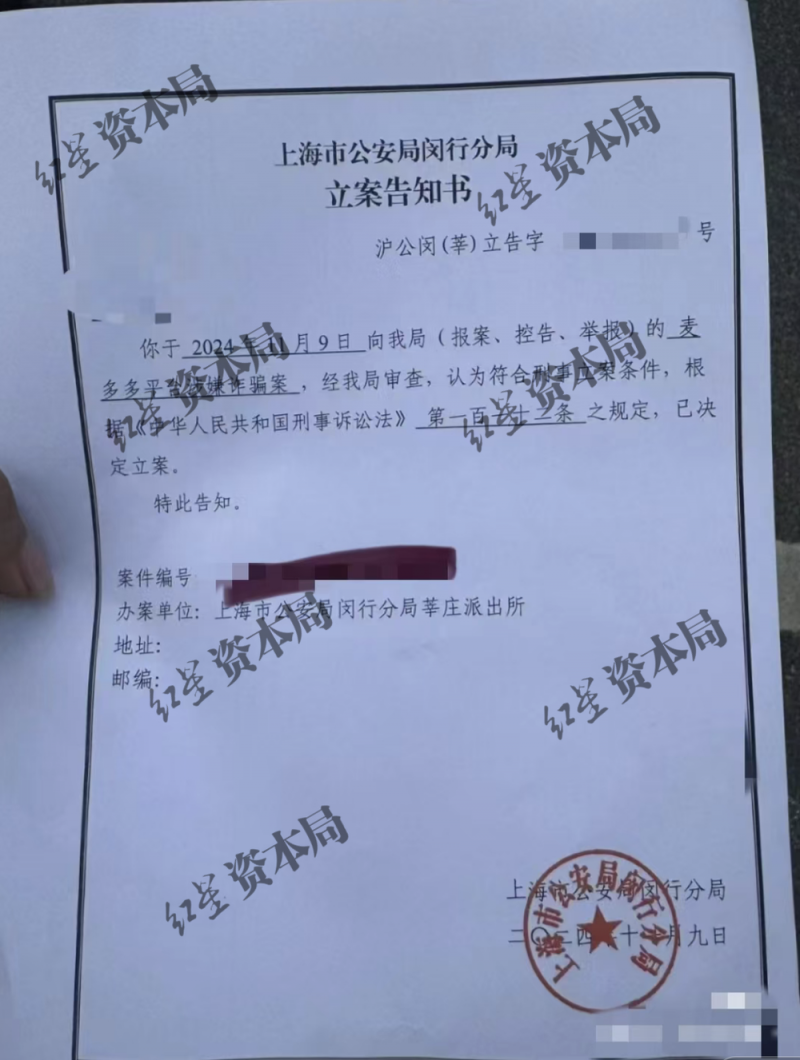 上海市公安局闵行分局
立案告知书
沪公闵(莘)立告字 号
你于 2024年11月9日 向我局(报案、控告、举报)的 麦
多多平台涉嫌诈骗案,经我局审查,认为符合刑事立案条件,根
据《中华人民共和国刑事诉讼法》 第一百 十二条 之规定,已决
定立案。
特此告知。
案件编号
办案单位:上海市公安局闵行分局莘庄派出所
地址:
邮编:
上海市公安局闵行分局
二〇二四年十一月九日
上海市公安局闵行分局
红星资本局
红星资本局
红星资本局
红星资本局
红星资本局
红星资本局
红星资本局